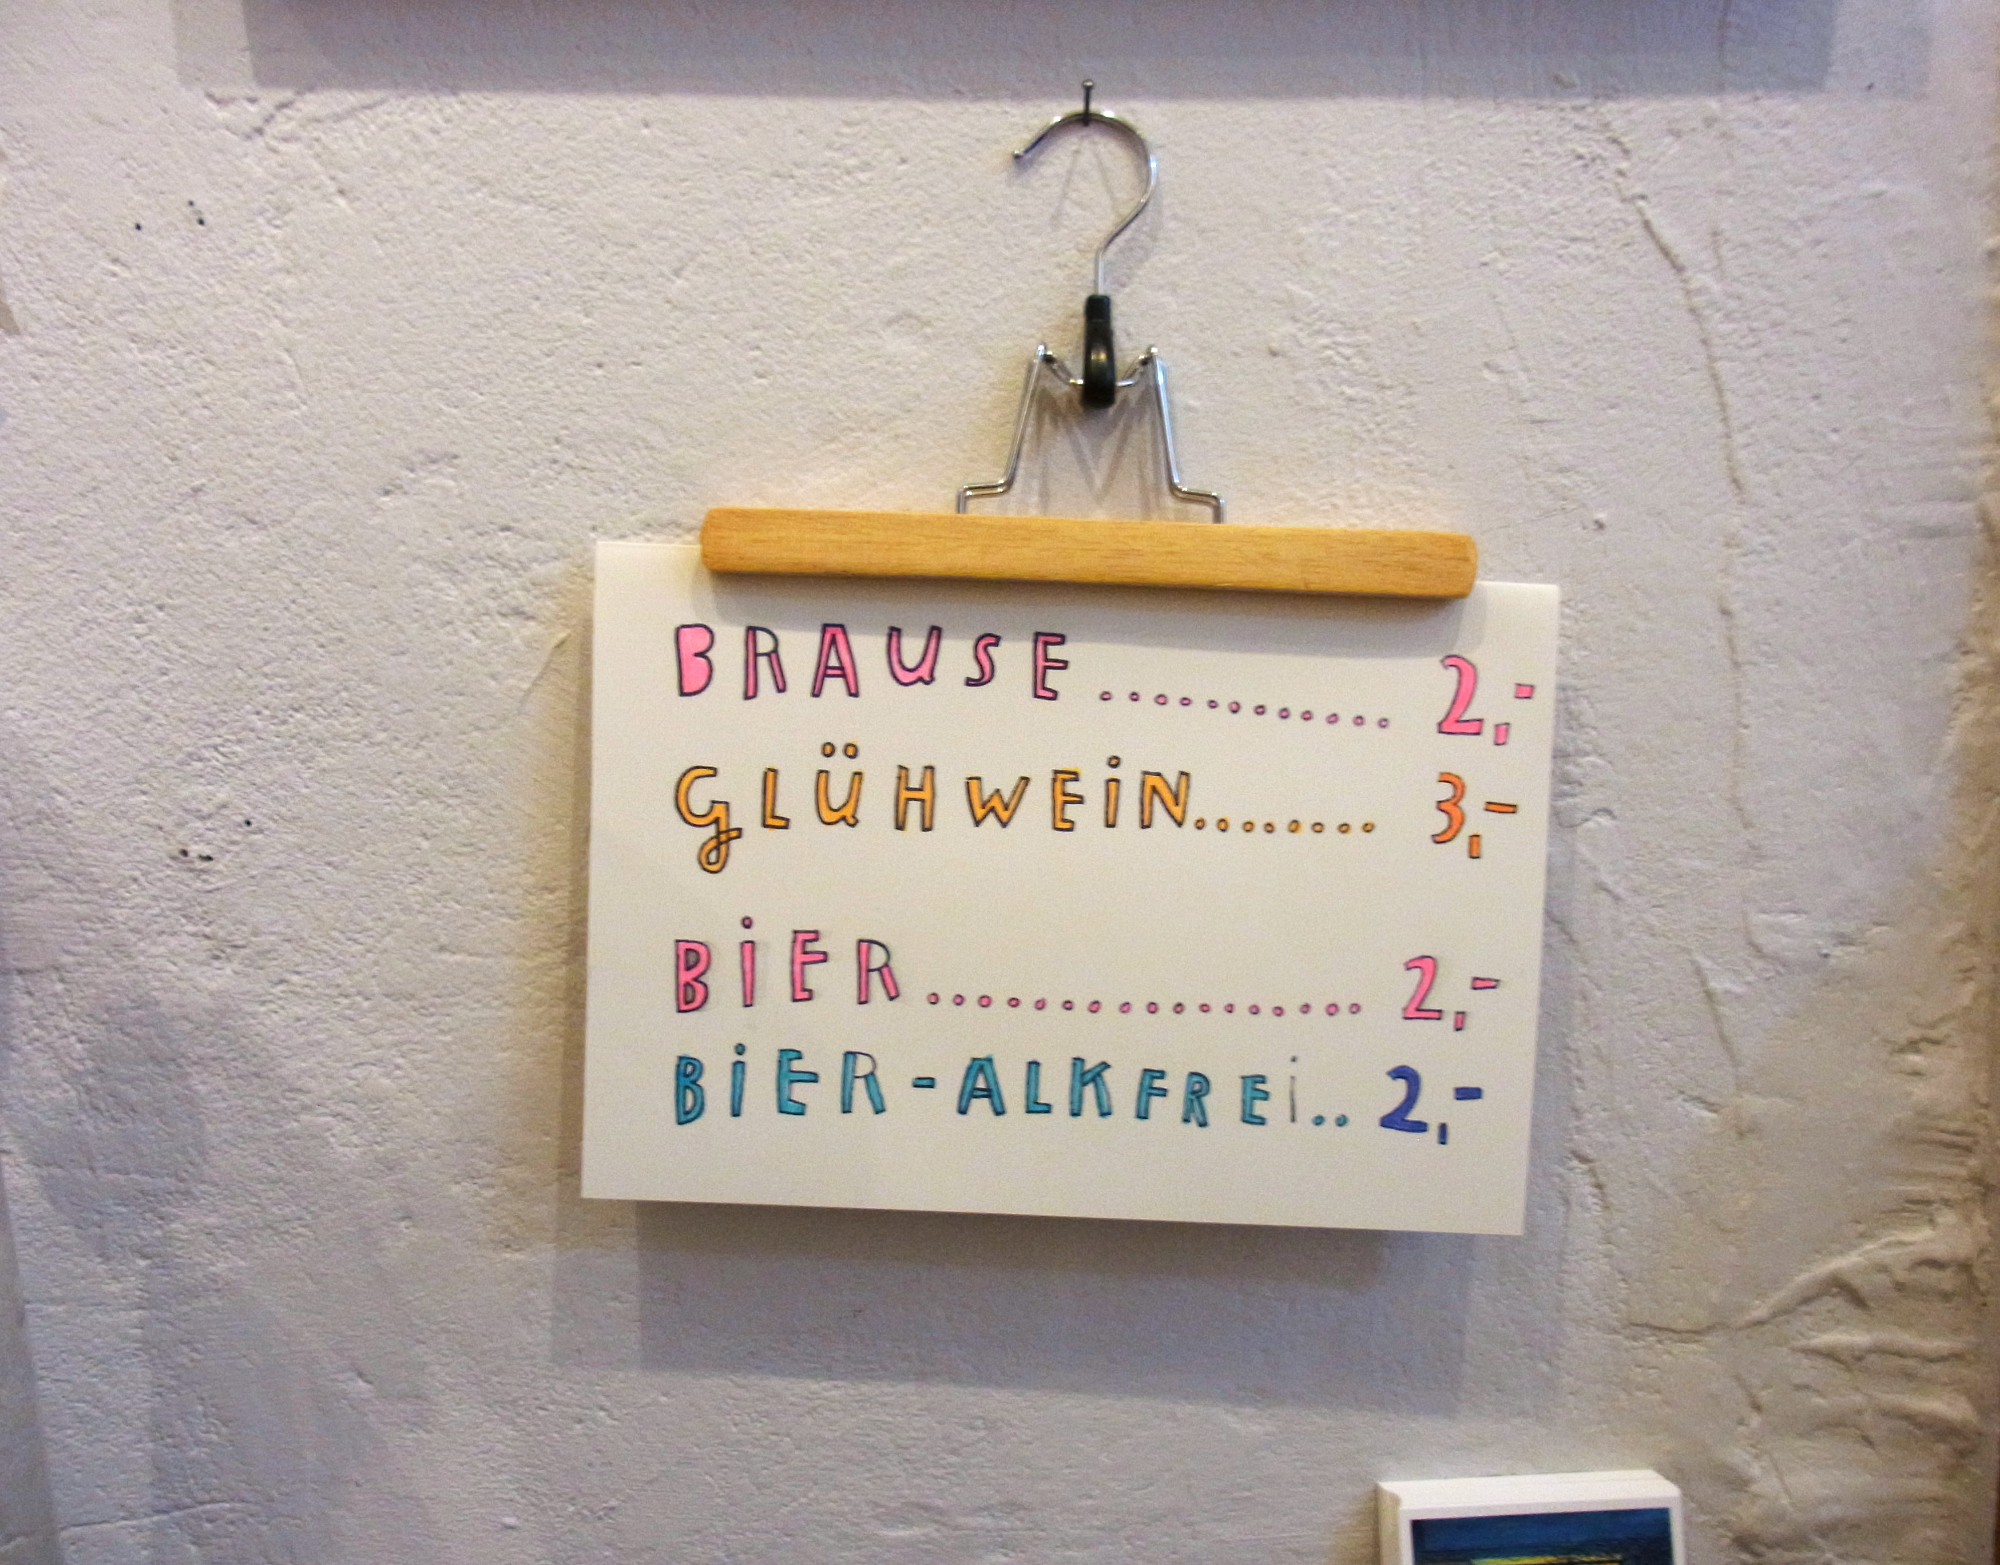 BRAUSE............ 2,-
GLÜHWEIN........ 3,-
BIER................. 2,-
BIER-ALKFREI.. 2,-